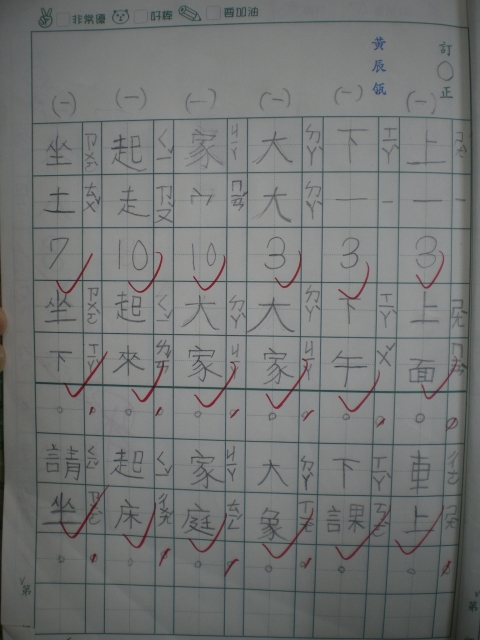 非常優 好棒 要加油
訂○正
黃辰瓴
(一)
上 ㄕㄤˋ
一 ㄧ
3
上面 ㄕㄤˋ ㄇㄧㄢˋ
。
車上 ㄔㄜ ㄕㄤˋ
。
(一)
下 ㄒㄧㄚˋ
一 ㄧ
3
下午 ㄒㄧㄚˋ ㄨˇ
。
下課 ㄒㄧㄚˋ ㄎㄜˋ
。
(一)
大 ㄉㄚˋ
大 ㄉㄚˋ
3
大家 ㄉㄚˋ ㄐㄧㄚ
。
大象 ㄉㄚˋ ㄒㄧㄤˋ
。
(一)
家 ㄐㄧㄚ
宀 ㄇㄧㄢˊ
10
大家 ㄉㄚˋ ㄐㄧㄚ
。
家庭 ㄐㄧㄚ ㄊㄧㄥˊ
。
(一)
起 ㄑㄧˇ
走 ㄗㄡˇ
10
起來 ㄑㄧˇ ㄌㄞˊ
。
起床 ㄑㄧˇ ㄔㄨㄤˊ
。
(一)
坐 ㄗㄨㄛˋ
土 ㄊㄨˇ
7
坐下 ㄗㄨㄛˋ ㄒㄧㄚˋ
。
請坐 ㄑㄧㄥˇ ㄗㄨㄛˋ
。
第
第